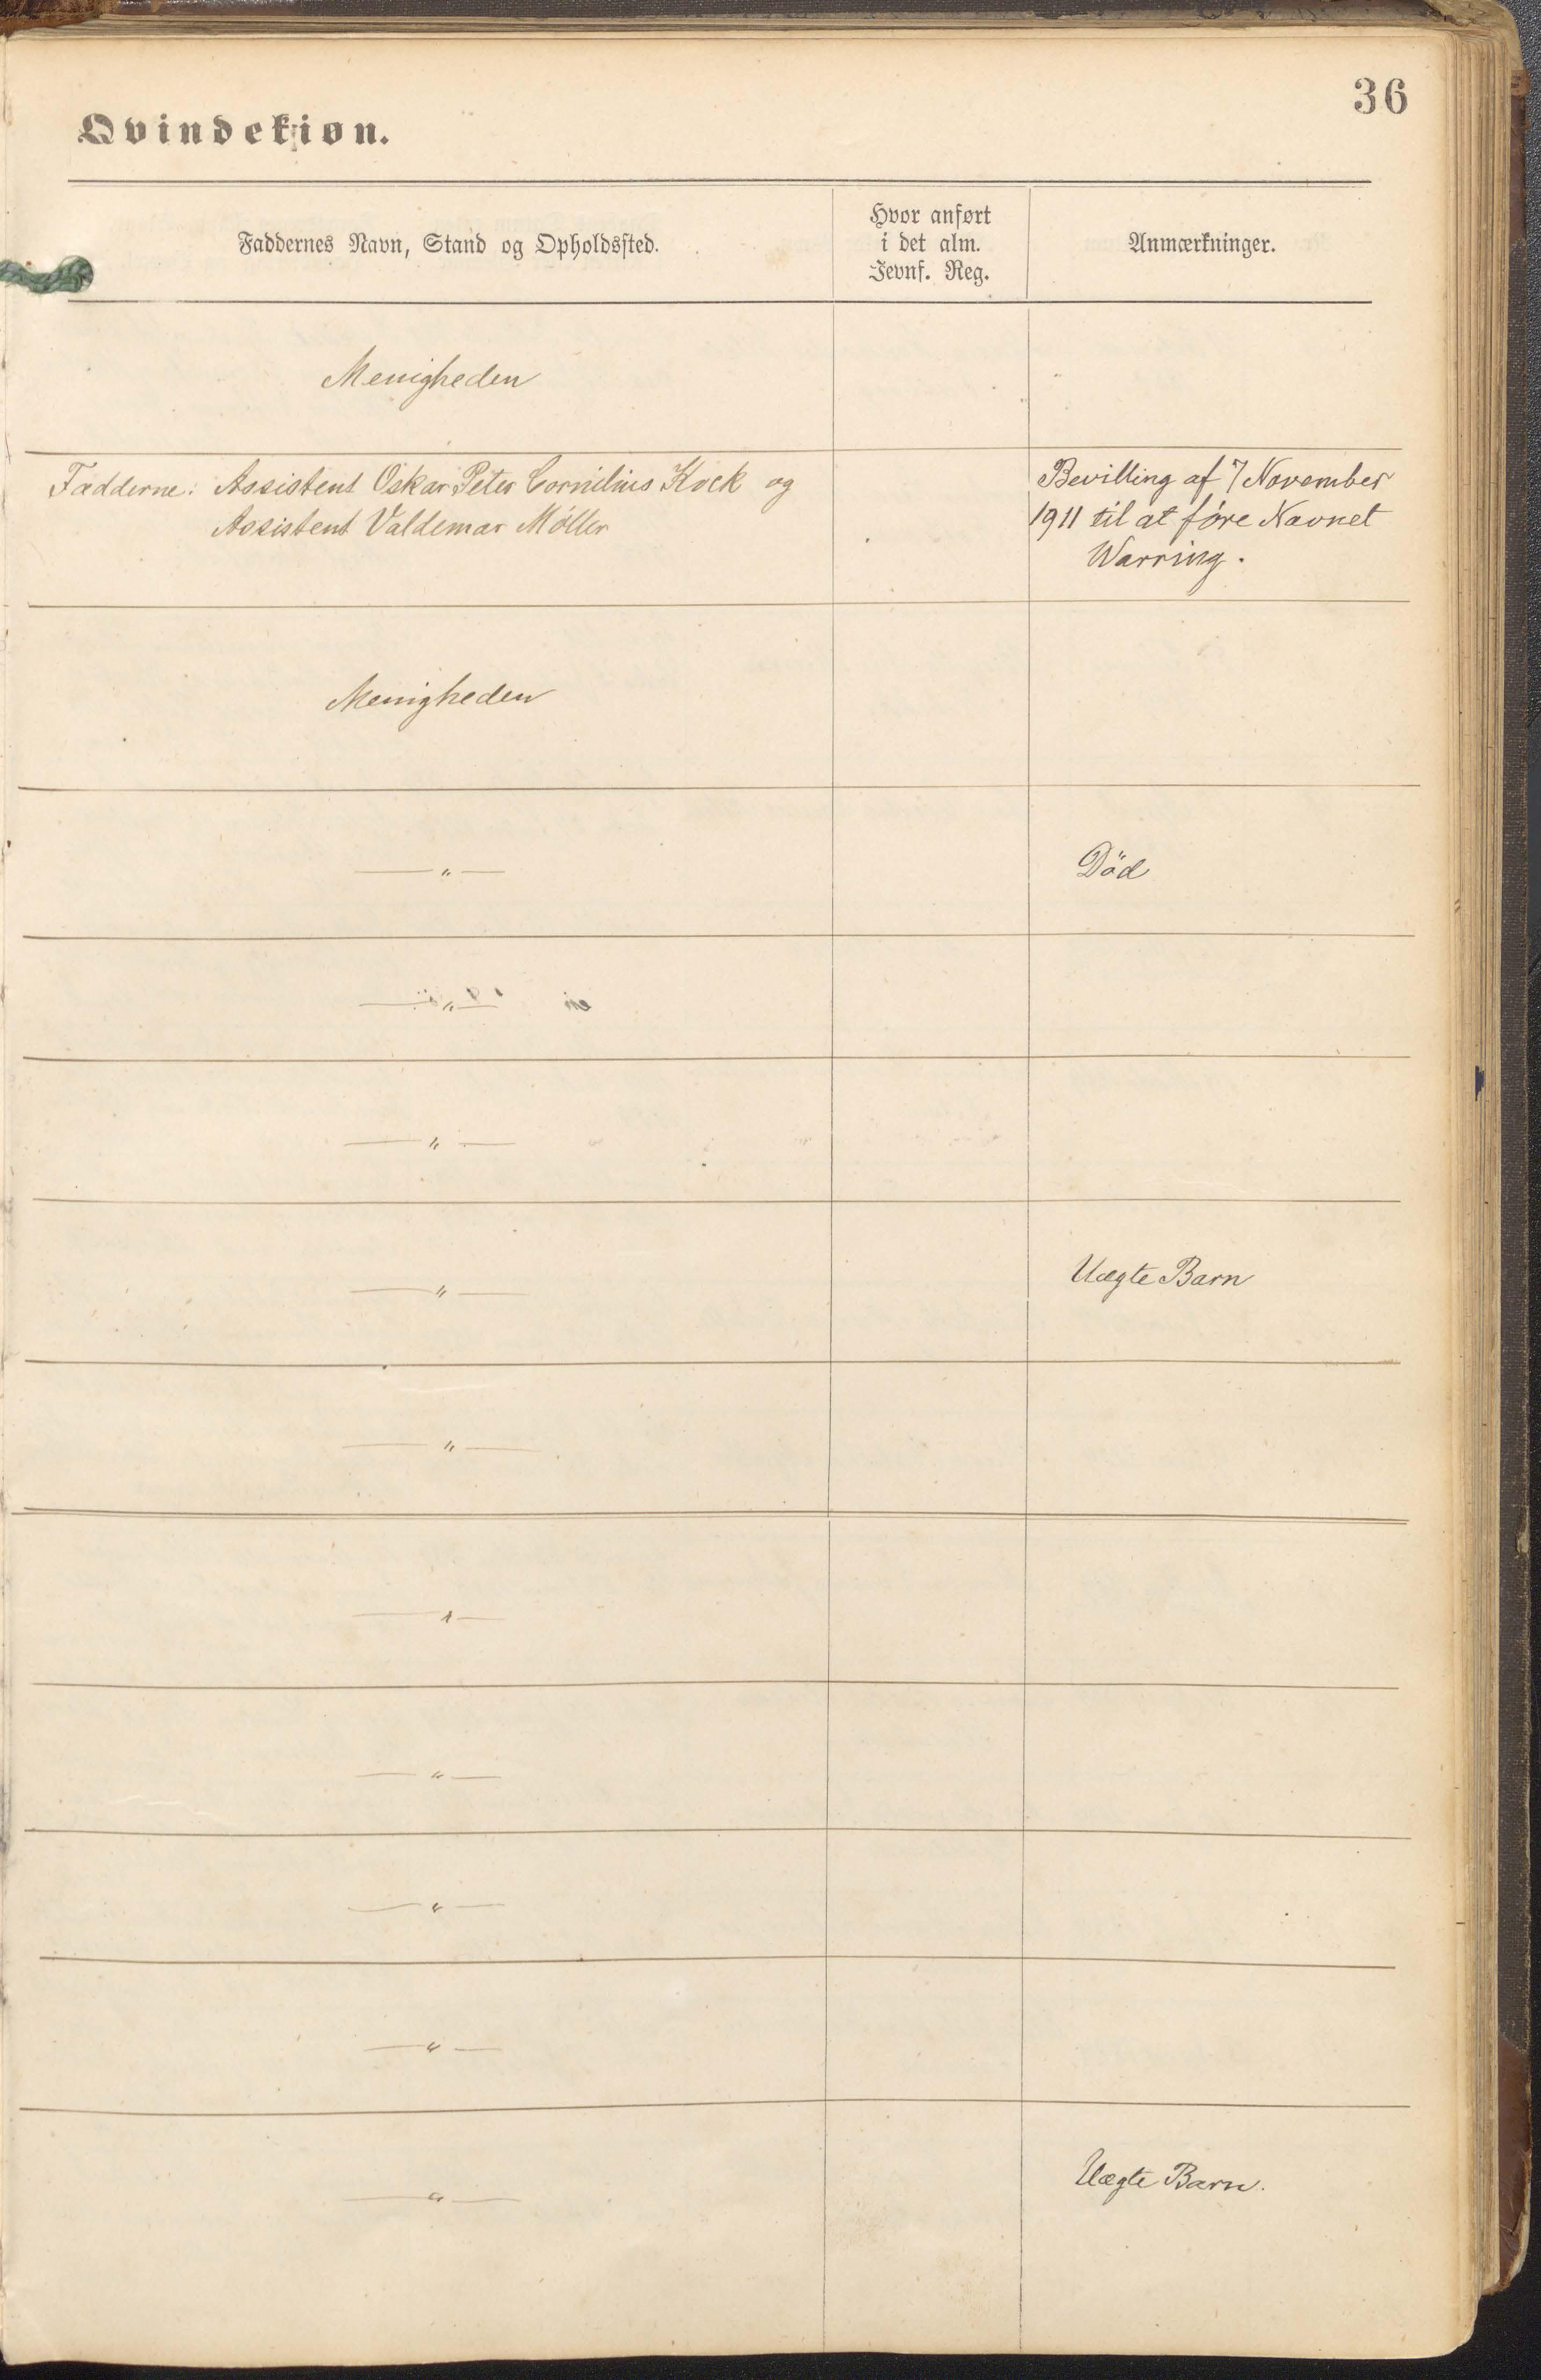 36
Qvindekiøn.
Faddernes Navn, Stand og Opholdssted.
Hvor anført
i det alm.
Jevnf. Reg.
Anmærkninger.
Menigheden
Fadderne: Assistent Oskar Peter Cornilius Kock og
Assistent Valdemar Möller
Bevilling af 7 November
1911 til at före Navnet
Warring.
Menigheden
— " —
Död
— " —
— " —
— " —
Uægte Barn
— " —
— " —
— " —
— " —
— " —
— " —
Uægte Barn.